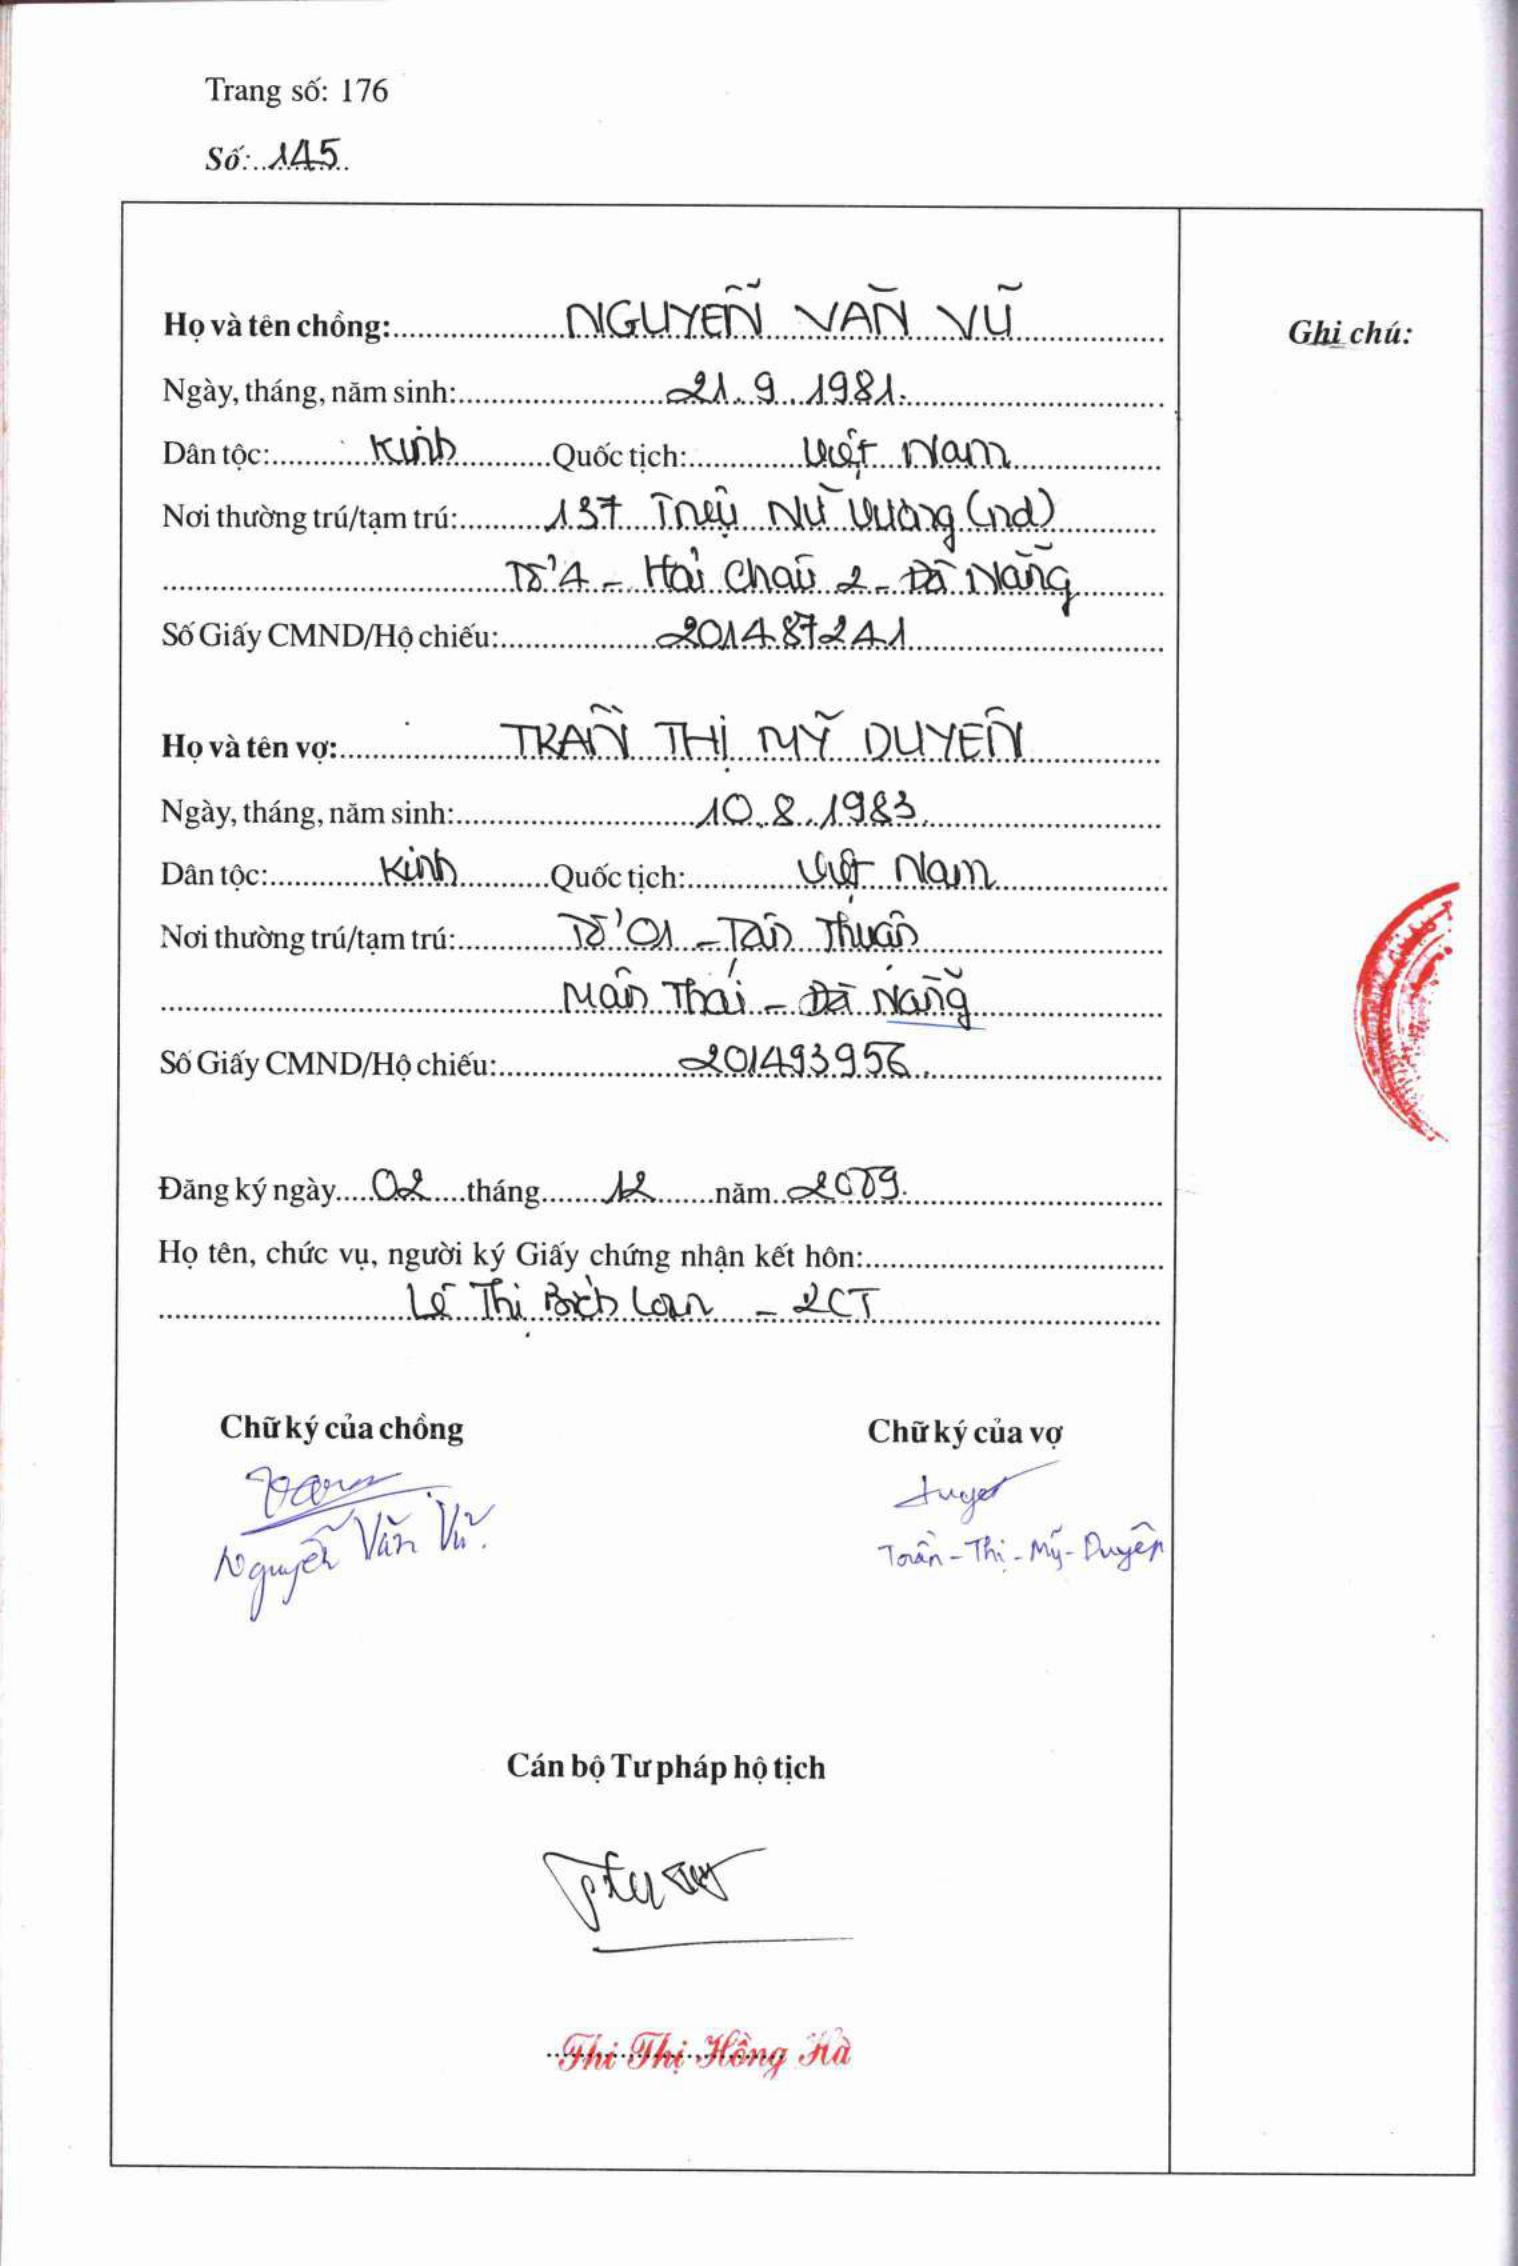 Trang số: 176
Số: 145
Họ và tên chồng: NGUYỄN VĂN VŨ
Ghi chú:
Ngày, tháng, năm sinh: 21.9.1981.
Dân tộc: Kinh Quốc tịch: Việt Nam
Nơi thường trú/tạm trú: 137 Triệu Nữ Vương (nd)
Tổ 4 - Hải Châu 2 - Đà Nẵng
Số Giấy CMND/Hộ chiếu: 201487241
Họ và tên vợ: TRẦN THỊ MỸ DUYÊN
Ngày, tháng, năm sinh: 10.8.1983.
Dân tộc: Kinh Quốc tịch: Việt Nam
Nơi thường trú/tạm trú: Tổ 01 - Tân Thuận
Mân Thái - Đà Nẵng
Số Giấy CMND/Hộ chiếu: 201493956.
Đăng ký ngày 02 tháng 12 năm 2009.
Họ tên, chức vụ, người ký Giấy chứng nhận kết hôn:
Lê Thị Bích Loan - 2CT
Chữ ký của chồng Chữ ký của vợ
Nguyễn Văn Vũ. Trần - Thị - Mỹ - Duyên
Cán bộ Tư pháp hộ tịch
Thi Thị Hồng Hà